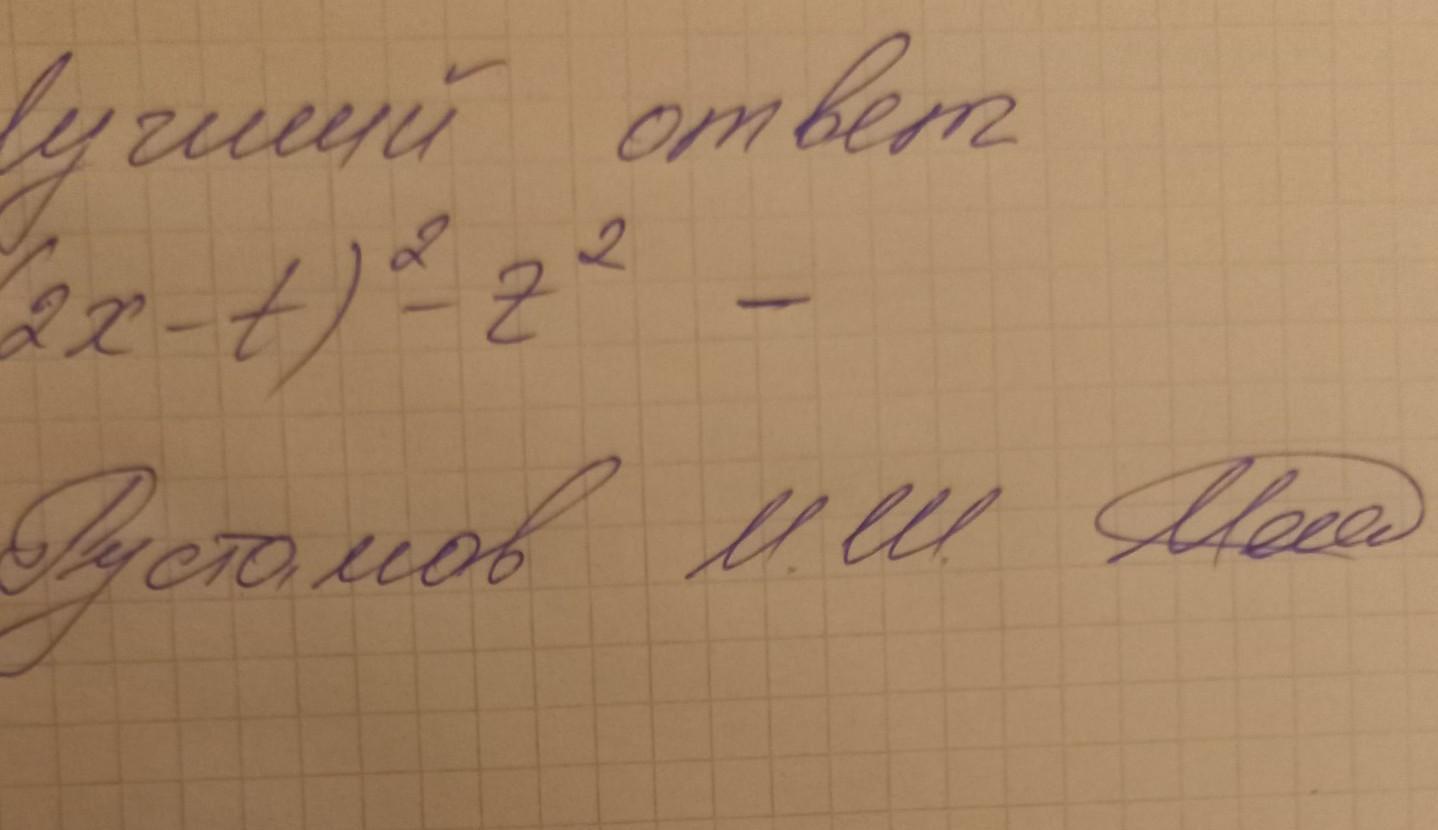 Лучший ответ
(2x-t)²-z² -
Рустамов И.Ш.